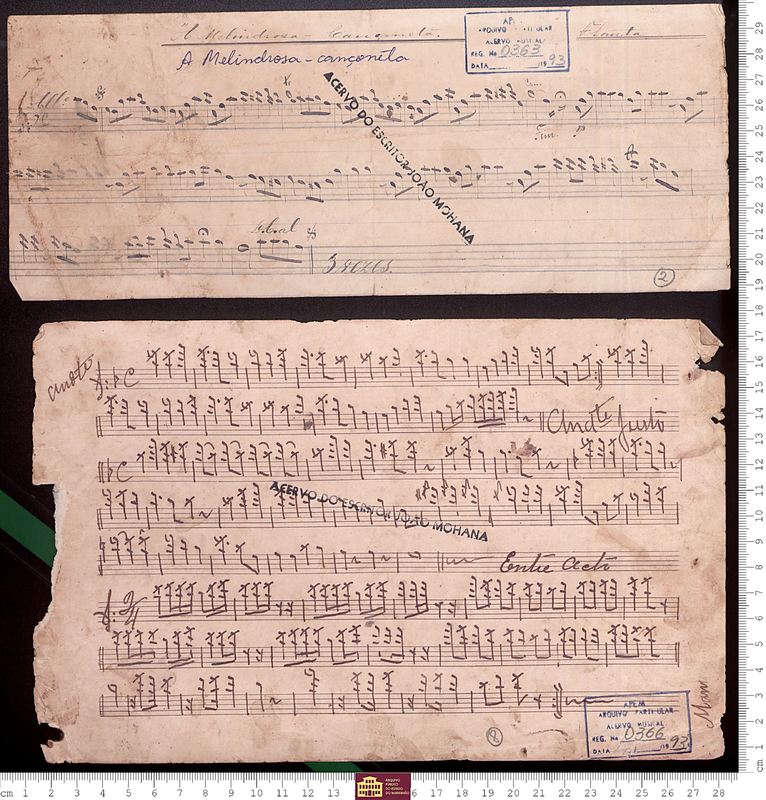 A Melindrosa - Cançoneta. Flauta
A Melindrosa - cançoneta
AP.
ARQUIVO PARTICULAR
ACERVO MUSICAL
REG. No 0363
DATA / /19 93
ACERVO DO ESCRITOR JOÃO MOHANA
Fim.
D.C. al
3 vezes.
2
Andte
C
Andte justo
C
ACERVO DO ESCRITOR JOÃO MOHANA
Entre Acto
2/4
2
APEM
ARQUIVO PARTICULAR
ACERVO MUSICAL
REG. No 0366
DATA / /19 93
cm 1 2 3 4 5 6 7 8 9 10 11 12 13 16 17 18 19 20 21 22 23 24 25 26 27 28
ARQUIVO PÚBLICO DO ESTADO DO MARANHÃO
cm 1 2 3 4 5 6 7 8 9 10 11 12 13 14 15 16 17 18 19 20 21 22 23 24 25 26 27 28 29